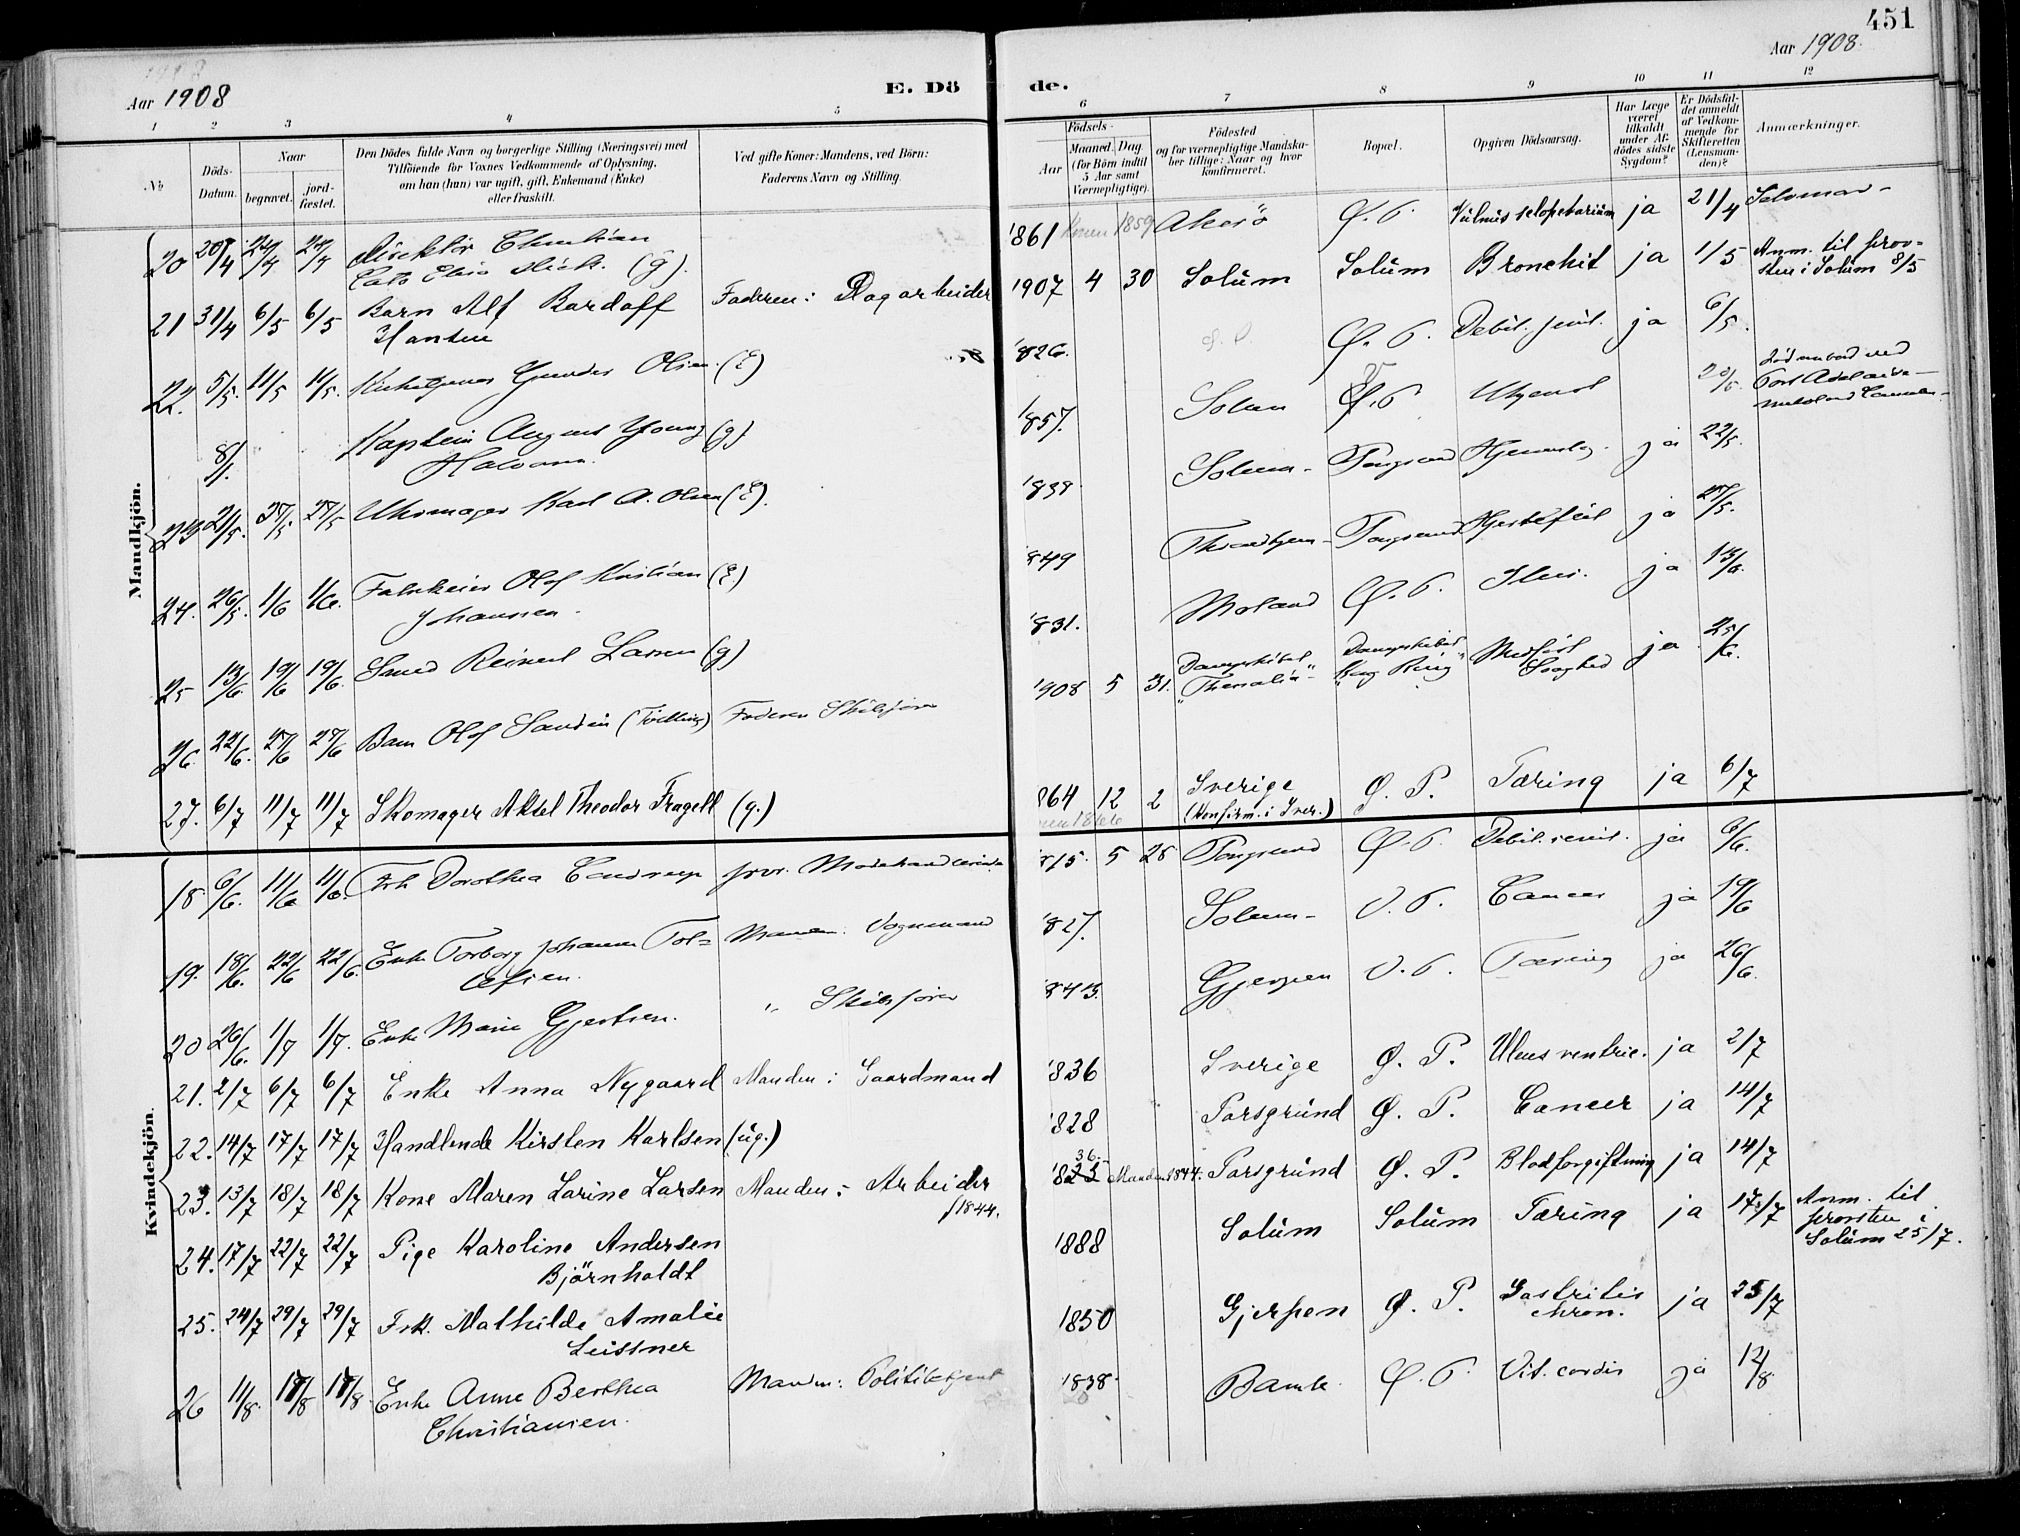 451
Aar 1908
E. Dö
de.
Aar 1908.
1 2 3 4 5 6 7 8 9 10 11 12
No
Döds-
Datum.
Naar
begravet.
jord-
fæstet.
Den Dödes fulde Navn og borgerlige Stilling (Næringsvei) med
Tilföiende for Voxnes Vedkommende af Oplysning,
om han (hun) var ugift, gift, Enkemand (Enke)
eller fraskilt.
Ved gifte Koner: Mandens, ved Börn:
Faderens Navn og Stilling.
Födsels-
Aar
Maaned. Dag.
(for Börn indtil
5 Aar samt
Værnepligtige).
Födested
og for værnepligtige Mandska-
ber tillige: Naar og hvor
konfirmeret.
Bopæl.
Opgiven Dödsaarsag.
Har Læge
været
tilkaldt
under Af-
dödes sidste
Sygdom?
Er Dödsfal-
det anmeldt
af Vedkom-
mende for
Skifteretten
(Lensman-
den)?
Anmærkninger.
Mandkjön.
20 20/4 24/4 24/4 Direktör Christian (g). '861 Konen 1859 Akerö Ø. P. Vulnus sclopetarium ja 21/4 Selvmor-
21 31/4 6/5 6/5 Barn Alf Bardoff Faderen: Dagarbeider 1907 4 30 Solum Solum Bronchit ja 1/5 Anm. til prov-
Hansen
sten i Solum 8/5
22. 5/5. 11/5 11/5. Gunder Olsen. (E) '826. Ø. P. Debil. senil. ja 6/5.
8/1 Kaptein August Young (g) '857. Solum Ø. P. Ukjendt 20/5.
Halvorsen.
23 21/5. 27/5 27/5 Uhrmager Karl A. Olsen (E). '838 Solum Porsgrund ja 22/5.
24. 26/5. 1/6 1/6. Fabrikeier Olof Kristian (E) 849 Porsgrund Hjertefeil ja 27/5.
Johansson.
25 13/6 19/6 19/6. Smed Reinert Larsen (g) '831. Moland Ø. P. Ileus. ja 13/6.
26 22/6. 27/6 27/6 Barn Olof Sandin (Tvilling) Faderen Skibsförer '908 5 31. Dampskibet "Thessalia" Dampskibet "Kong Ring" Medfödt Svaghed ja 25/6.
27. 6/7 11/7 11/7 Skomager Aksel Theodor Fragell (g.) 864 12 2 Sverige Ø. P. Tæring ja 6/7
(Konfirm. i Sver.)
Kvindekjön.
18 6/6. 11/6 11/6. Frk Dorothea Modehandlerinde '815. 5 25 Porsgrund Ø. P. Debil. senil. ja 6/6.
19. 18/6. 22/6 22/6. Enke Torborg Johanne Tol= Manden: Vognmand '827. Solum V. P. Cancer ja 19/6
lefsen.
20 26/6. 1/7 1/7. Enke Marie Gjertsen. " Skibsförer 843. Gjerpen V. P. Tæring ja 26/6.
21. 2/7 6/7 6/7 Enke Anna Nygaard Manden: Gaardmand '836 Sverige Ø. P. Ulcus ventric. ja 2/7
22. 14/7 17/7 17/7 Handlende Kirsten Karlsen (ug.) '828 Porsgrund Ø. P. Cancer ja 14/7
23. 13/7 18/7 18/7 Kone Maren Larine Larsen Manden: Arbeider f 1844. '825 36. Manden 1844. Porsgrund Ø. P. Blodforgiftning ja 14/7
24. 17/7 22/7 22/7 Pige Karoline Andersen 1888 Solum Solum Tæring ja 17/7 Anm. til
Björnholdt
provsten i
Solum 25/7.
25. 24/7 29/7 29/7 Frk. Mathilde Amalie 1850 Gjerpen Ø. P. Gastritis ja 25/7
Leissner
chron.
26 11/8. 18/8 18/8. Enke Anne Berthea Manden: Politibetjent 1838 Bamle Ø. P. Vit. cordis ja 12/8.
Christiansen.